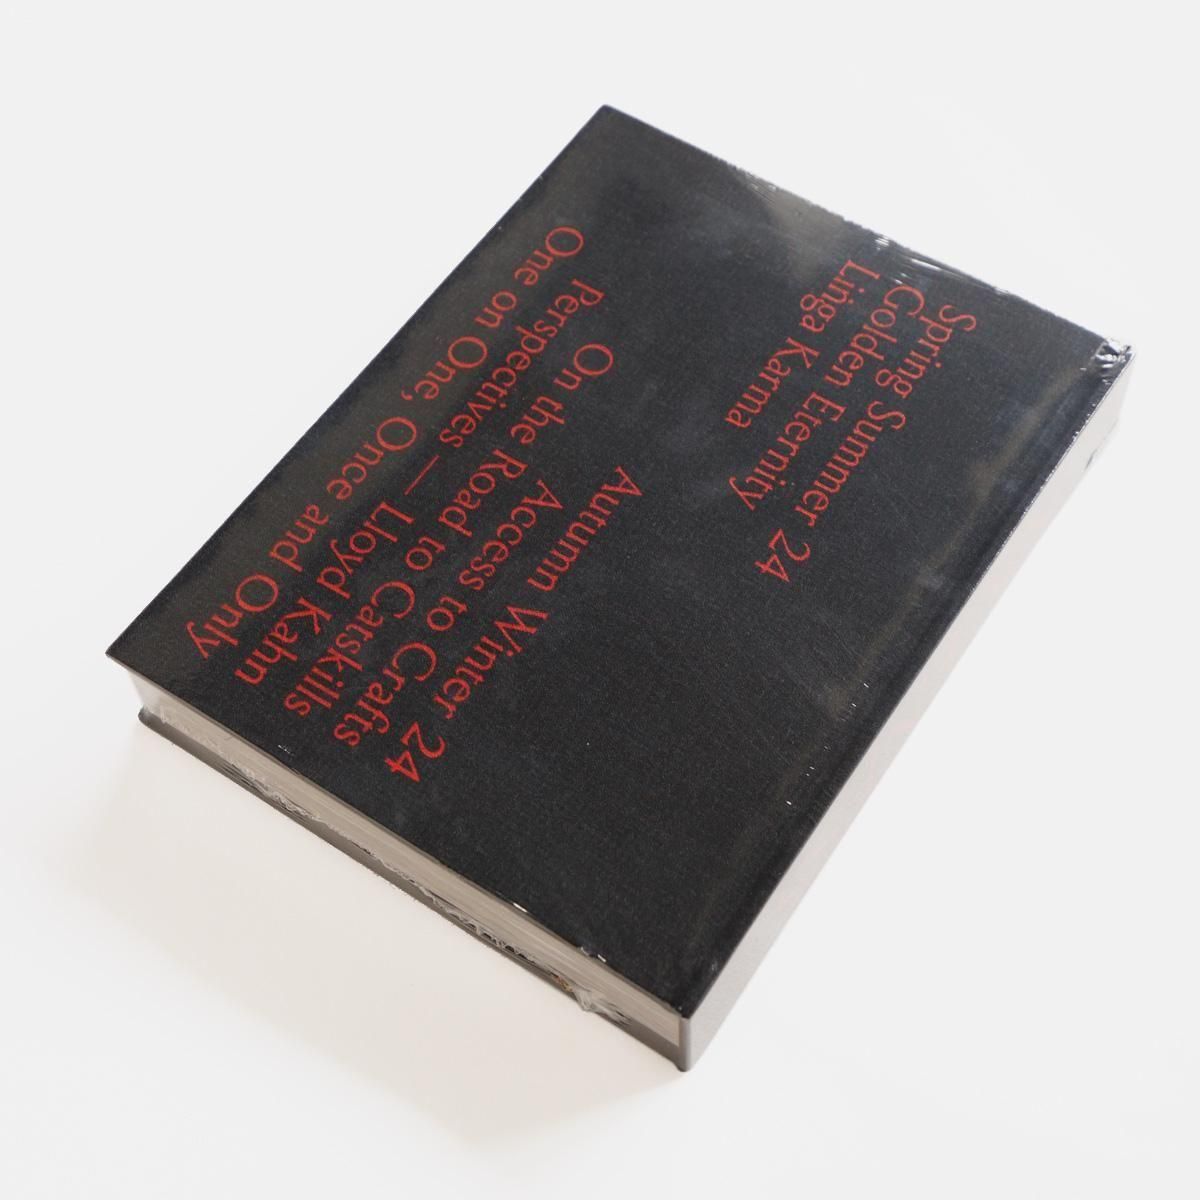 Spring Summer 24
Golden Eternity
Linga Karma
Autumn Winter 24
Access to Crafts
On the Road to Catskills
Perspectives — Lloyd Kahn
One on One, Once and Only